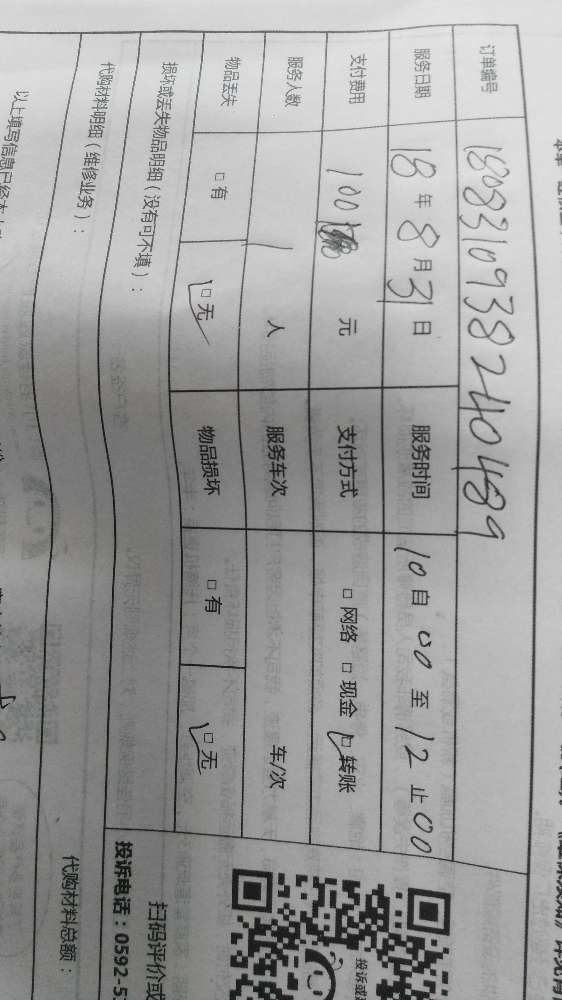 订单编号 1808310938240489
服务日期 18年8月31日 服务时间 10自00至12止00
支付费用 100 元 支付方式 □网络 □现金 □转账
服务人数 1 人 服务车次 车/次
物品丢失 □有 □无 物品损坏 □有 □无
损坏或丢失物品明细（没有可不填）：
代购材料明细（维修业务）： 代购材料总额：
以上填写信息已经
扫码评价或
投诉电话：0592-5
投诉或